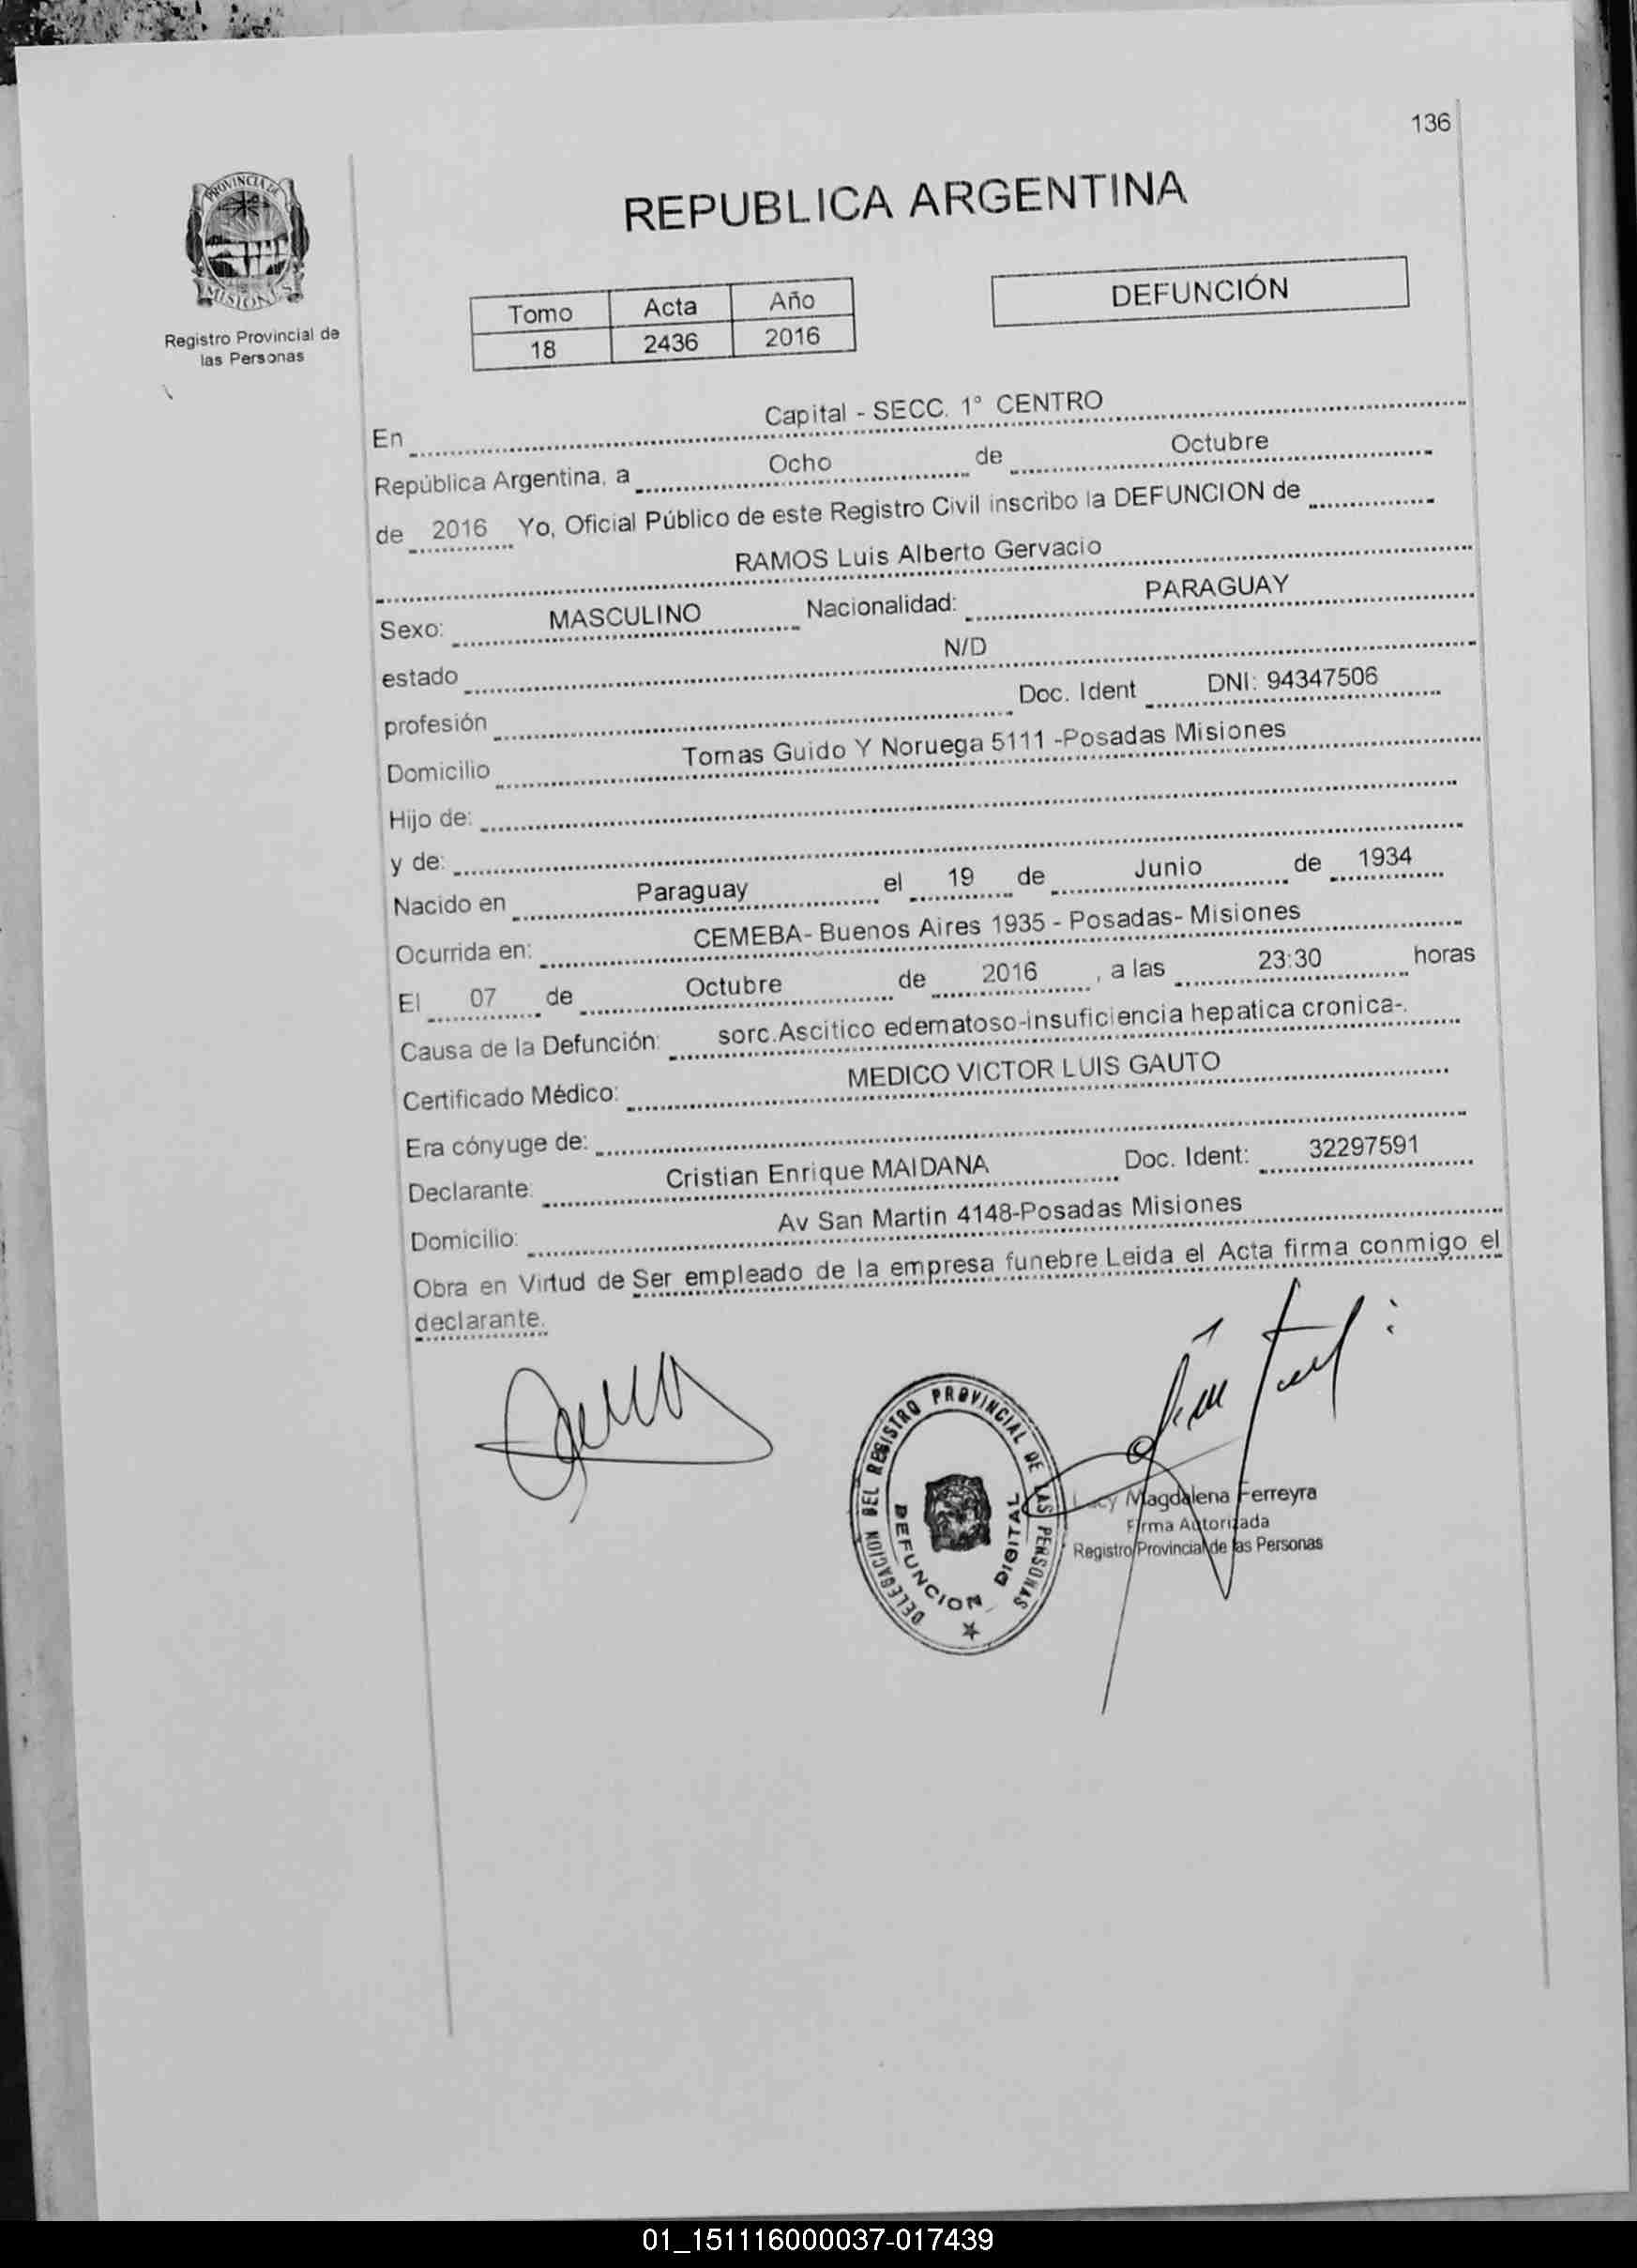 136
PROVINCIA DE
MISIONES
Registro Provincial de
las Personas
REPUBLICA ARGENTINA
Tomo Acta Año
18 2436 2016
DEFUNCIÓN
En Capital - SECC. 1° CENTRO
República Argentina, a Ocho de Octubre
de 2016 Yo, Oficial Público de este Registro Civil inscribo la DEFUNCION de
RAMOS Luis Alberto Gervacio
Sexo: MASCULINO Nacionalidad: PARAGUAY
estado N/D
profesión Doc. Ident DNI: 94347506
Domicilio Tomas Guido Y Noruega 5111 -Posadas Misiones
Hijo de:
y de:
Nacido en Paraguay el 19 de Junio de 1934
Ocurrida en: CEMEBA- Buenos Aires 1935 - Posadas- Misiones
El 07 de Octubre de 2016 , a las 23:30 horas
Causa de la Defunción: sorc.Ascitico edematoso-insuficiencia hepatica cronica-.
Certificado Médico: MEDICO VICTOR LUIS GAUTO
Era cónyuge de:
Declarante: Cristian Enrique MAIDANA Doc. Ident: 32297591
Domicilio: Av San Martin 4148-Posadas Misiones
Obra en Virtud de Ser empleado de la empresa funebre Leida el Acta firma conmigo el
declarante.
DELEGACION DEL REGISTRO PROVINCIAL DE LAS PERSONAS
DEFUNCION DIGITAL
Magdalena Ferreyra
Firma Autorizada
Registro Provincial de las Personas
01_151116000037-017439